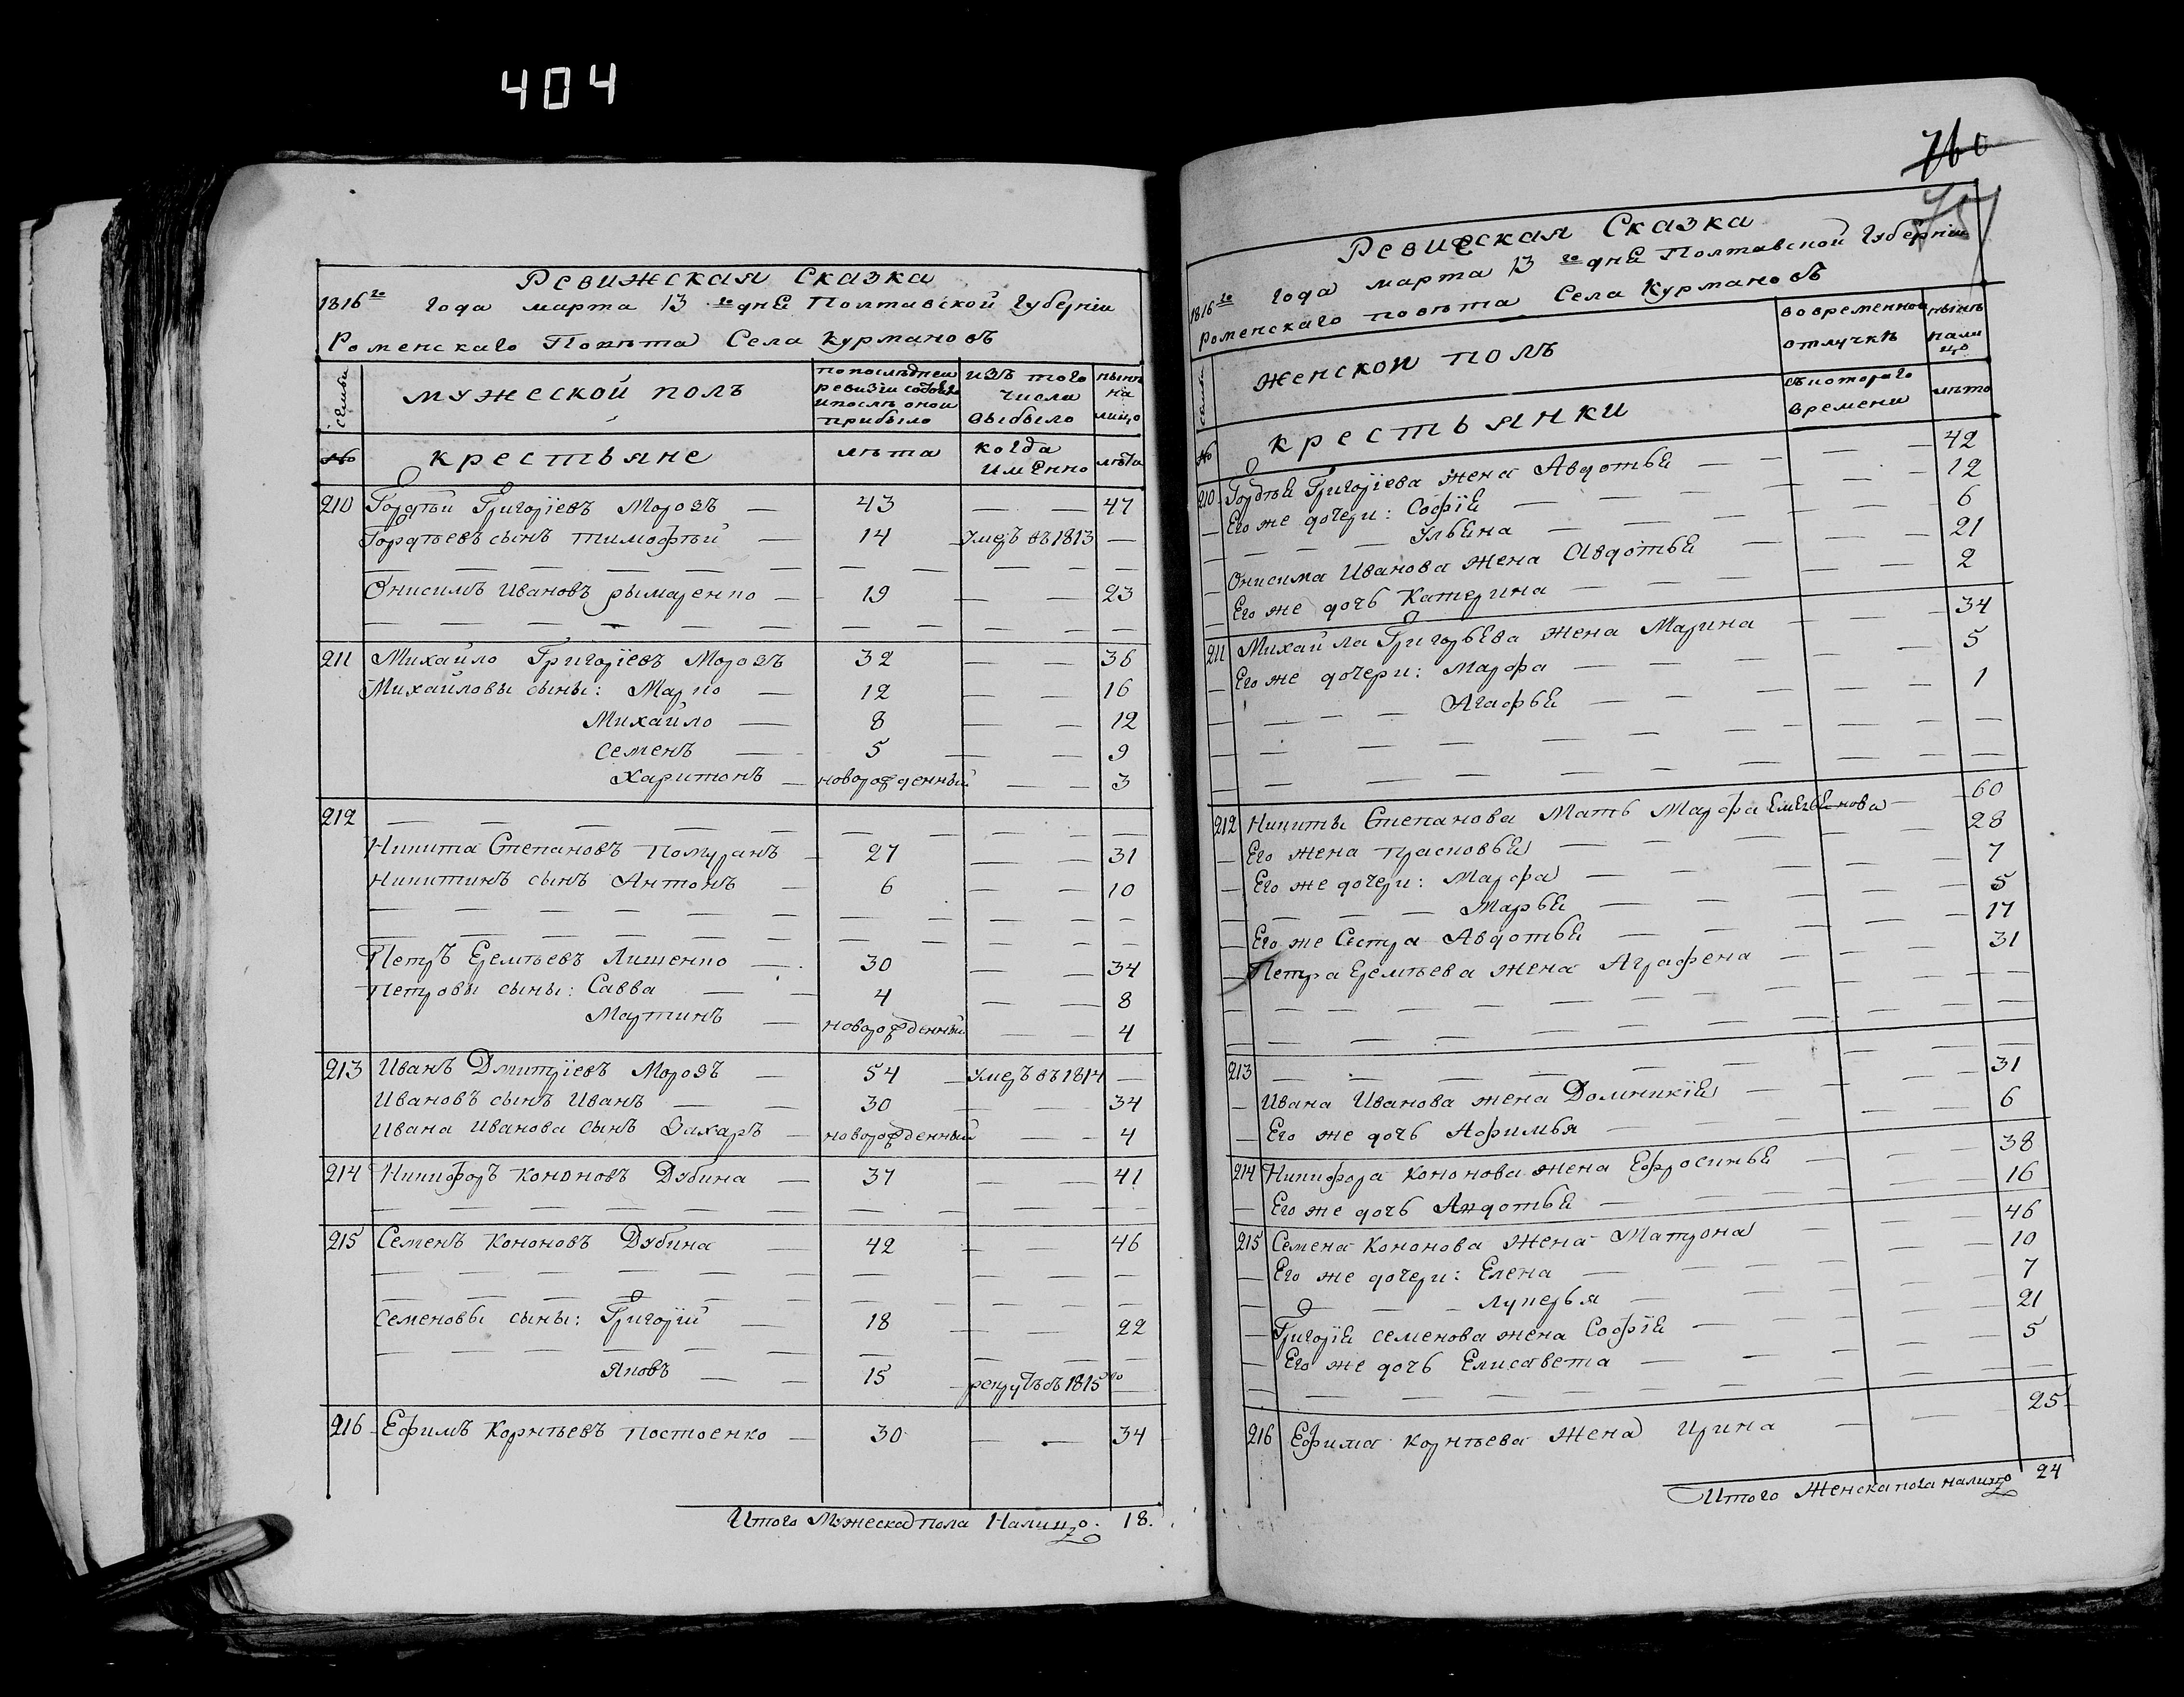 404
Ревижская Сказка
1816го года марта 13го днЕ Полтавской Губерніи
Роменскаго Повѣта Села Курмановъ
семьи
мужеской полъ
по последнеи ревизги состояло и послѣ онои прибыло
изъ того числа выбыло
нынѣ на лицо
№
крестьяне
лѣта
когда имЕнно
лѣта
210 Гордѣй Григоріевъ Морозъ — 43 — — 47
Гордѣевъ сынъ Тимофѣй — 14 умеръ въ 1813 —
Онисимъ Ивановъ Рымаренко — 19 — — 23
211 Михайло Григоріевъ Морозъ 32 — — 36
Михайловы сыны: Марко — 12 — — 16
Михайло — 8 — — 12
Семенъ — 5 — — 9
Харитонъ — новорожденный — — 3
212
Никита Степановъ Помуранъ — 27 — — 31
Никитинъ сынъ Антонъ — 6 — — 10
Петръ Еремѣевъ Лишенко — 30 — — 34
Петровы сыны: Савва — — 4 — — 8
Мартинъ — новорожденный — — 4
213 Иванъ Дмитріевъ Морозъ — 54 — умеръ въ 1814 —
Ивановъ сынъ Иванъ — — 30 — — 34
Ивана Иванова сынъ Захаръ — новорожденный — — 4
214 Никифоръ Кононовъ Дубина — 37 — — 41
215 Семенъ Кононовъ Дубина — 42 — — 46
Семеновы сыны: Григорій — 18 — — 22
Яковъ — — 15 — рекрутъ въ 1815го —
216 Ефимъ Корнѣевъ Костоенко — 30 — — 34
Итого Мужеска пола Налицо. 18.
760
757
Ревизская Сказка
1816го года марта 13го днЕ Полтавской Губерніи
Роменскаго повѣта Села Курмановъ
семьи
женскои полъ
во временной отлучкѣ
нынѣ нали цо
съ котораго времени
лѣто
№
крестьянки
210 Гордѣя Григоріева жена Авдотья — — 42
Его же дочери: Софія — 12
Ульяна — 6
Онисима Иванова жена Авдотья — 21
Его же дочь Катерина — 2
211 Михайла Григорьева жена Марина — 34
Его же дочери: Марфа — 5
Агафья — 1
212 Никиты Степанова Мать Марфа Емельянова — 60
Его жена Прасковья — 28
Его же дочери: Марфа — 7
Марья — 5
Его же Сестра Авдотья — 17
Петра Еремѣева жена Аграфена — 31
213
Ивана Иванова жена Домникія — 31
Его же дочь Афимья — 6
214 Никифора Кононова жена Ефросинья — 38
Его же дочь Авдотья — 16
215 Семена Кононова жена Матрона — 46
Его же дочери: Елена — 10
Лукерья — 7
Григорія Семенова жена Софія — 21
Его же дочь Елисавета — 5
216 Ефима Корнѣева жена Ирина — 25
Итого Женска пола налицо 24